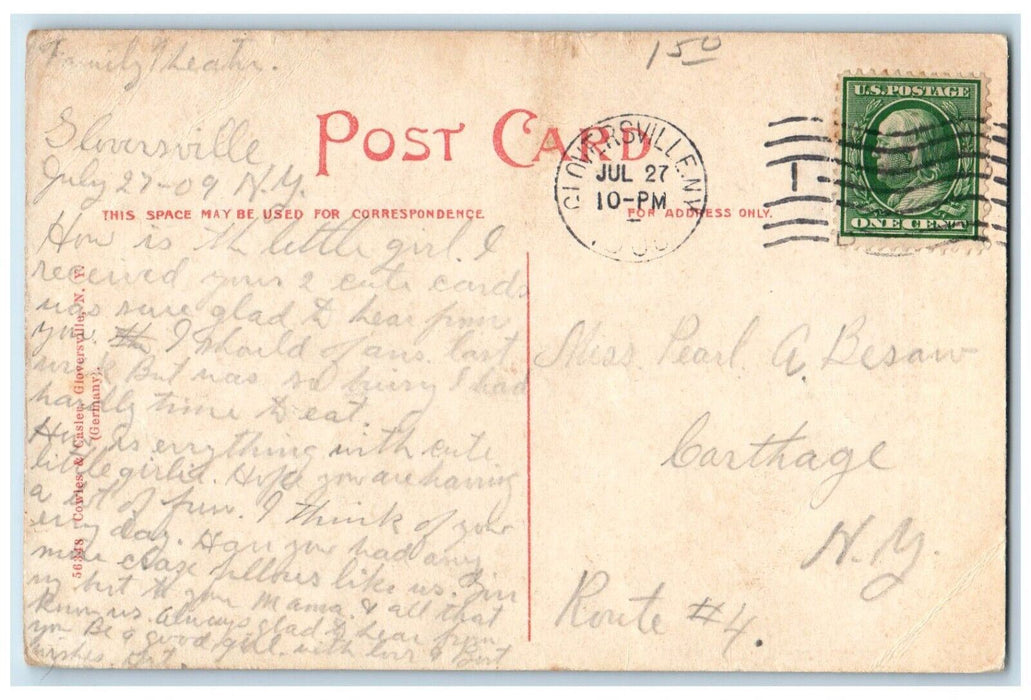 Family Theatre.
150
Gloversville
July 27-09 N.Y.
POST CARD
THIS SPACE MAY BE USED FOR CORRESPONDENCE.
FOR ADDRESS ONLY.
GLOVERSVILLE N.Y.
JUL 27
10-PM
U.S. POSTAGE
ONE CENT
How is the little girl. I
received your 2 cute cards
was sure glad to hear from
you. I should of ans. last
week But was so busy I had
hardly time to eat.
How is errything with cute
little girlie. Hope you are having
a lot of fun. I think of your
erry day. Have you had any
more crase fellows like us. Give
my best to your Mama & all that
know us. Always glad to hear from
you Be a good girl. with love & Best
wishes.
56348 Cowles & Casler, Gloversville, N. Y.
(Germany).
Miss Pearl A. Besaw
Carthage
N.Y.
Route #4.